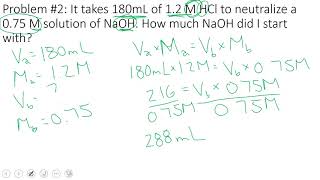 Problem #2: It takes 180mL of 1.2 M HCl to neutralize a
0.75 M solution of NaOH. How much NaOH did I start
with?
Va = 180mL
Ma = 1.2M
Vb = ?
Mb = 0.75
Va × Ma = Vb × Mb
180mL × 1.2M = Vb × 0.75M
216 = Vb × 0.75M
0.75M 0.75M
288mL